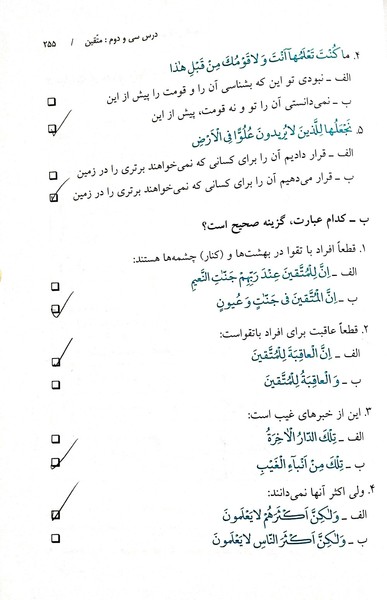 درس سی و دوم : متّقین / ۲۵۵
۴. ما كُنْتَ تَعْلَمُهآ اَنْتَ وَ لا قَوْمُكَ مِنْ قَبْلِ هٰذا
الف ـ نبودی تو این که بشناسی آن را و قومت را پیش از این
ب ـ نمی‌دانستی آن را تو و نه قومت، پیش از این
۵. نَجْعَلُها لِلَّذینَ لا یُریدونَ عُلُوًّا فِی الْاَرْضِ
الف ـ قرار دادیم آن را برای کسانی که نمی‌خواهند برتری را در زمین
ب ـ قرار می‌دهیم آن را برای کسانی که نمی‌خواهند برتری را در زمین
ب ـ کدام عبارت، گزینه صحیح است؟
۱. قطعاً افراد با تقوا در بهشت‌ها و (کنار) چشمه‌ها هستند:
الف ـ اِنَّ لِلْمُتَّقینَ عِنْدَ رَبِّهِمْ جَنّٰتِ النَّعیمِ
ب ـ اِنَّ الْمُتَّقینَ فی جَنّٰتٍ وَ عُیونٍ
۲. قطعاً عاقبت برای افراد باتقواست:
الف ـ اِنَّ الْعاقِبَةَ لِلْمُتَّقینَ
ب ـ وَ الْعاقِبَةُ لِلْمُتَّقینَ
۳. این از خبرهای غیب است:
الف ـ تِلْكَ الدّارُ الْاٰخِرَةُ
ب ـ تِلْكَ مِنْ اَنْبآءِ الْغَیْبِ
۴. ولی اکثر آنها نمی‌دانند:
الف ـ وَلٰكِنَّ اَكْثَرَهُمْ لا یَعْلَمونَ
ب ـ وَلٰكِنَّ اَكْثَرَ النّاسِ لا یَعْلَمونَ